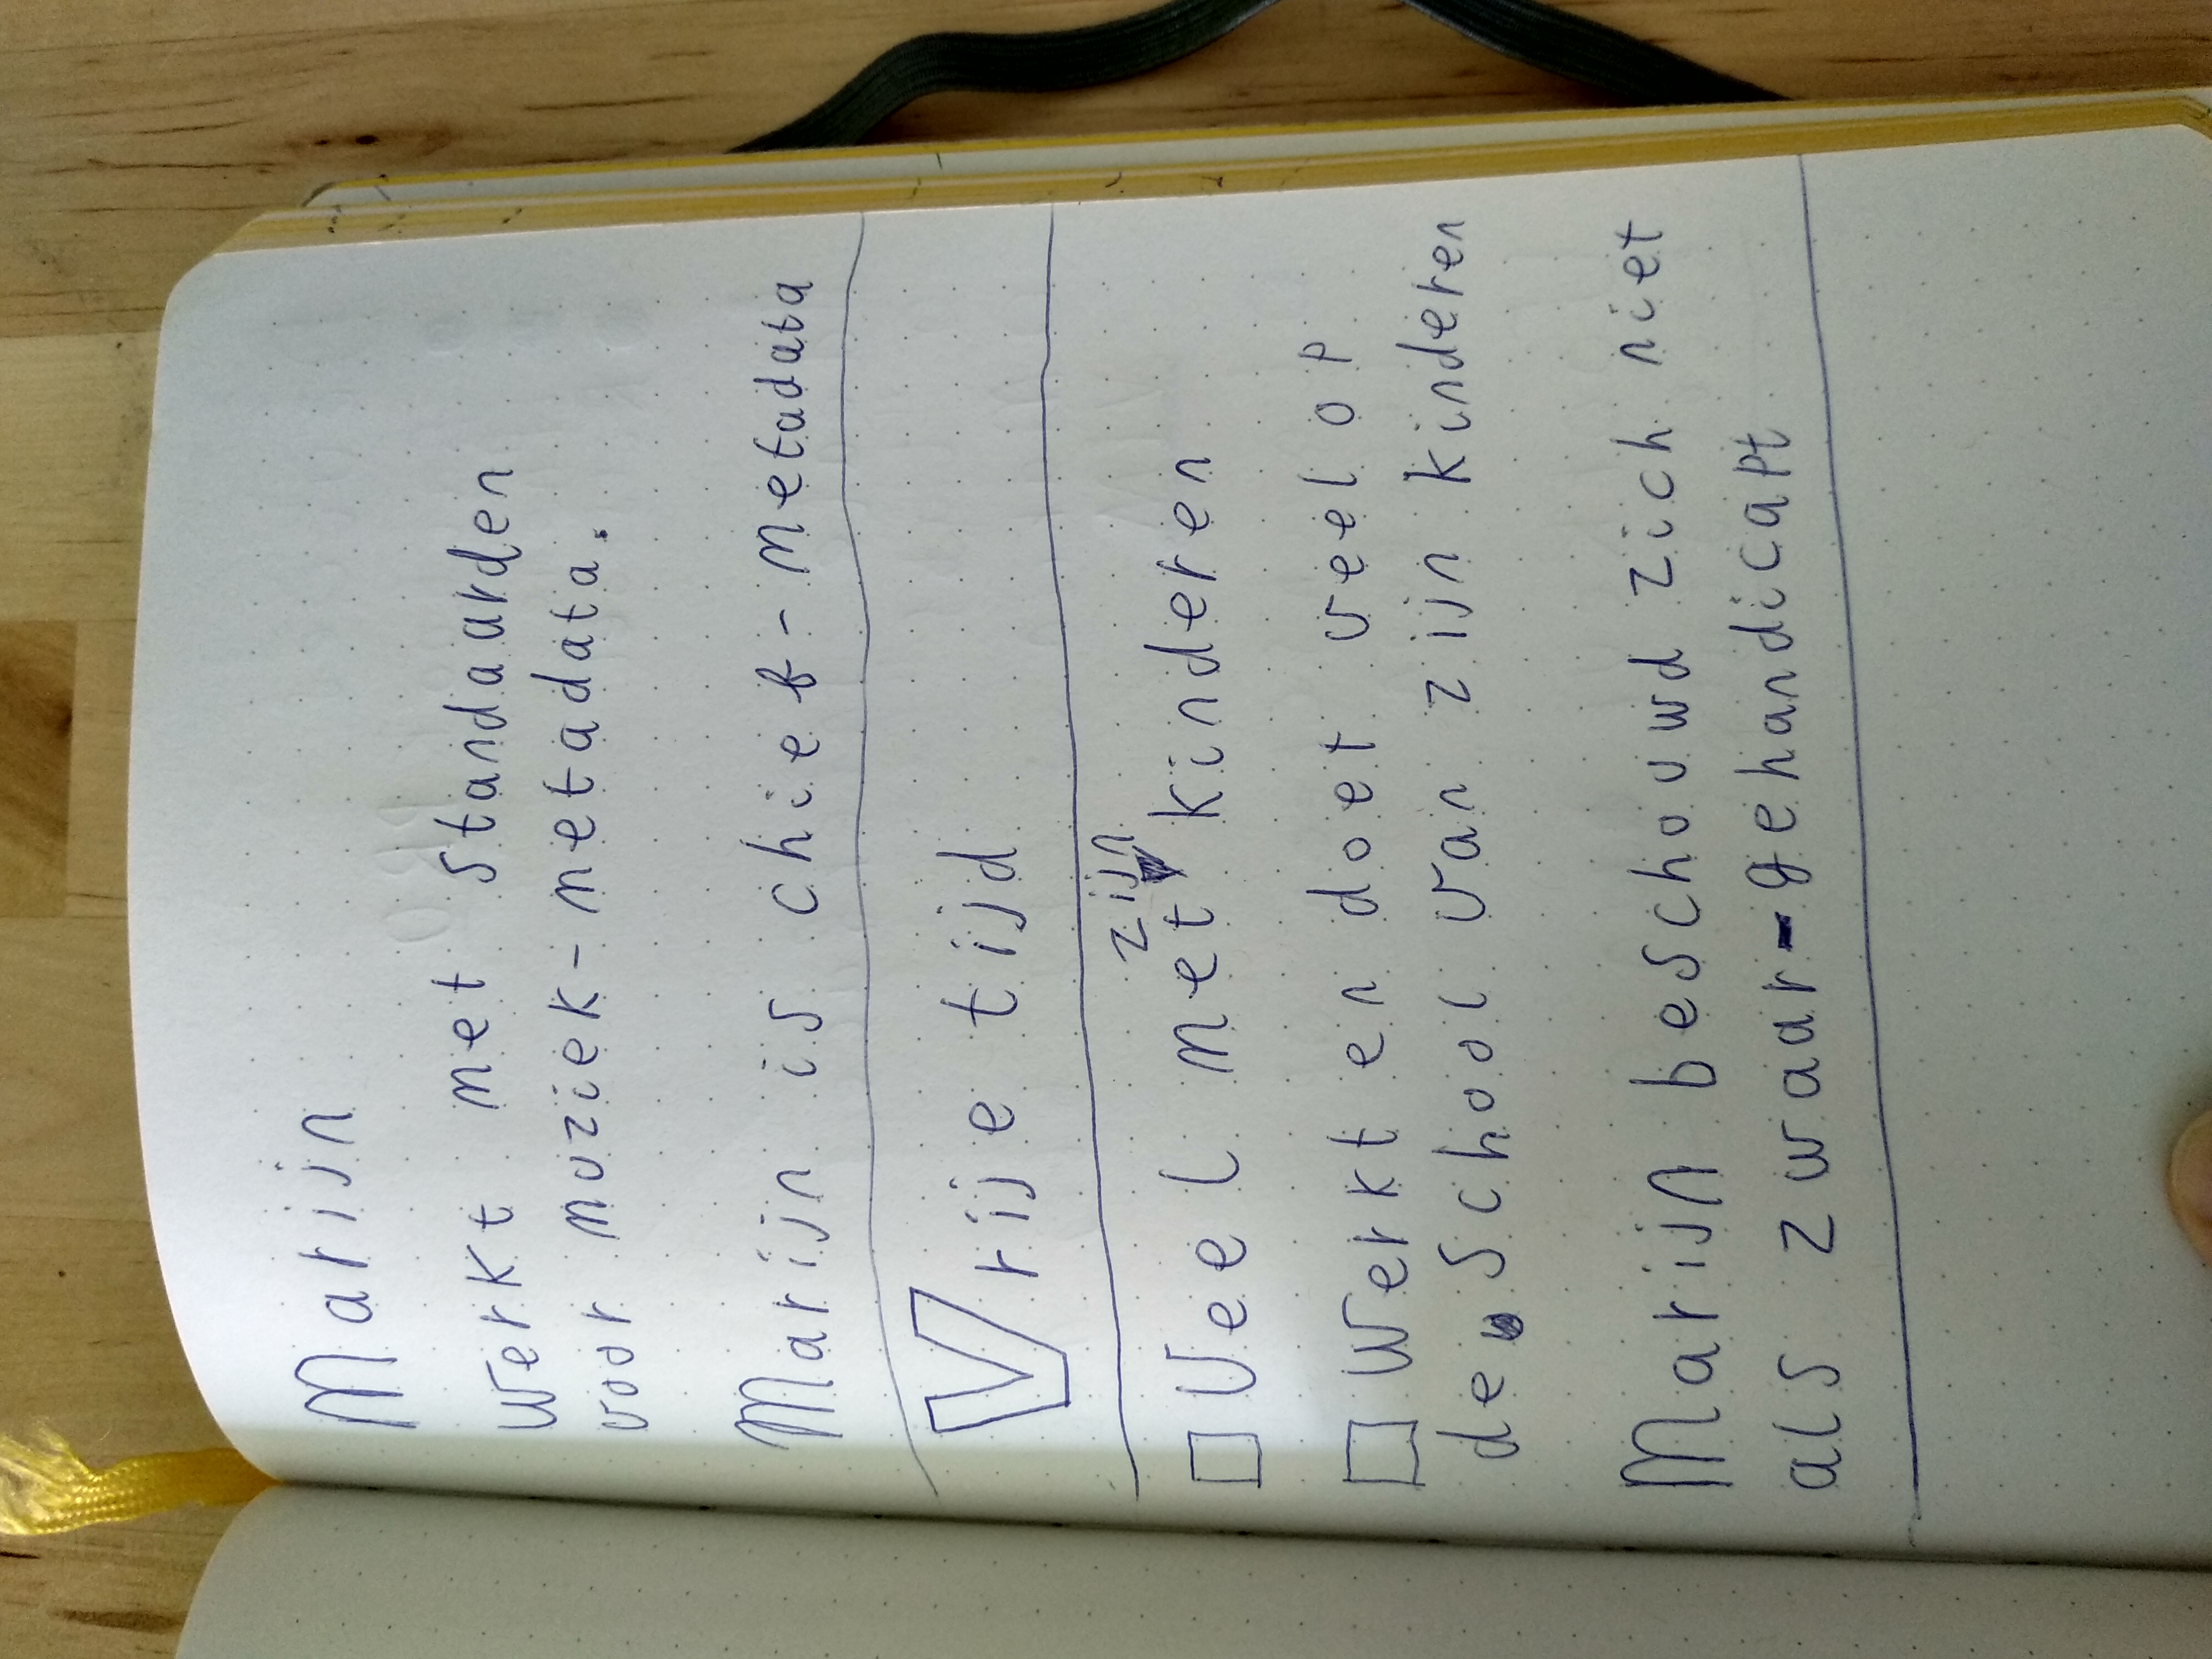 Marijn
werkt met standaarden
voor muziek-metadata.
Marijn is chief-metadata
Vrije tijd
zijn
Veel met kinderen
Werkt en doet veel op
de school van zijn kinderen
Marijn beschouwd zich niet
als zwaar-gehandicapt